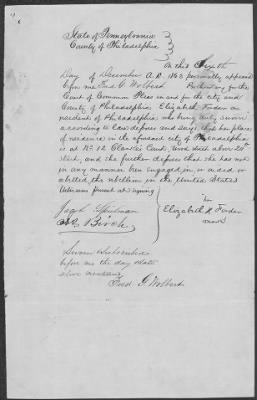 State of Pennsylvania
County of Philadelphia
On this Sixth
Day of December A.D. 1863 personally appeared
before me Fred G. Wolbert Prothonotary for the
Court of Common Pleas in and for the city and
County of Philadelphia Elizabeth
resident of Philadelphia, who being duly sworn
according to law deposes and says that her place
of residence in the aforesaid city of Philadelphia
is at No. 12 Court, Wood street above 20th
street, and she further deposes that she has not
in any manner been engaged in, or aided or
abetted, the rebellion in the United States
Witnesses present at signing
her
Jacob
Elizabeth X
Birch
mark
Sworn & subscribed
before me the day & date
above
Fred G. Wolbert